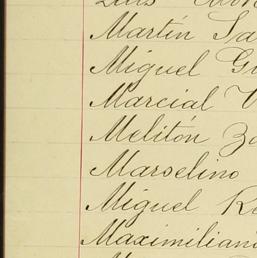 Luis
Martín Sa
Miguel Gu
Marcial V
Melitón Za
Marselino
Miguel Ro
Maximiliano